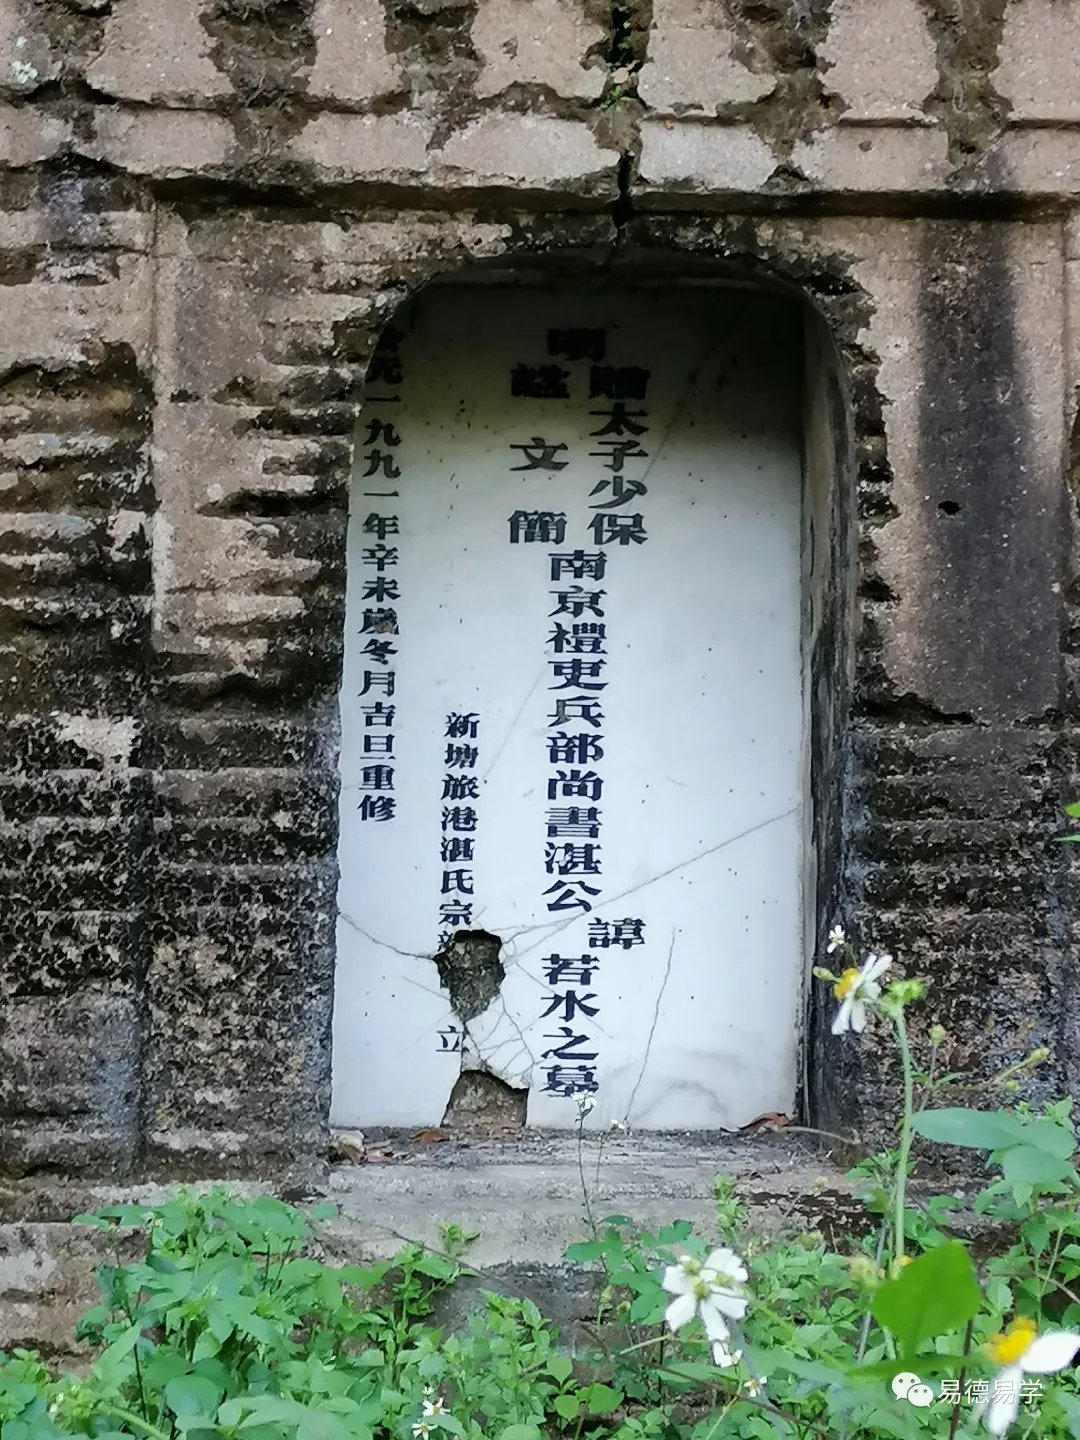 明
贈太子少保
諡文簡
南京禮吏兵部尚書湛公
諱
若水之墓
新塘旅港湛氏宗
立
公元一九九一年辛未歲冬月吉旦重修
易德易学